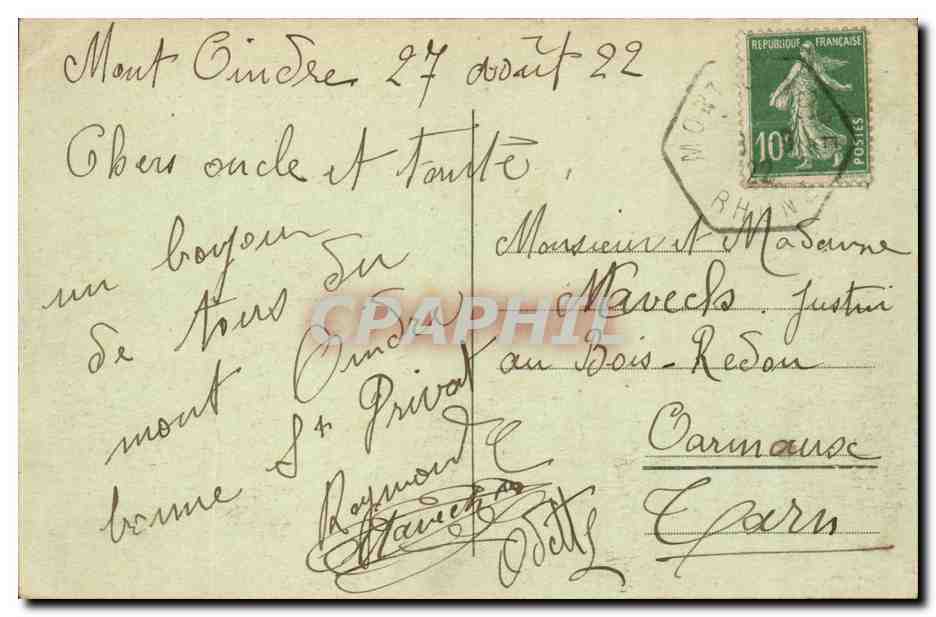 Mont Cindre 27 août 22
Chers oncle et tante,
un bonjour
de tous du
mont Cindre
bonne St Privat
Raymond
Mavech
Odette
REPUBLIQUE FRANÇAISE
10
POSTES
MONT
22
RHONE
Monsieur et Madame
Mavech Justin
au Bois-Redon
Carmaux
Tarn
CPAPHIL